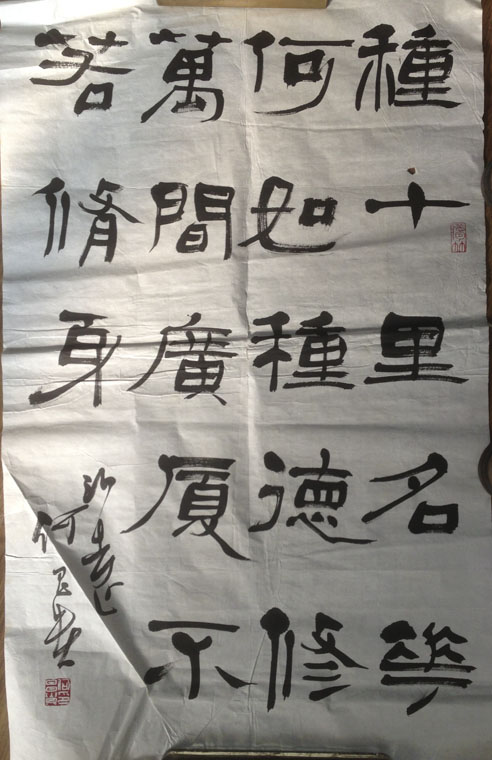 種十里名花
何如種德修
萬間廣厦不
若脩身